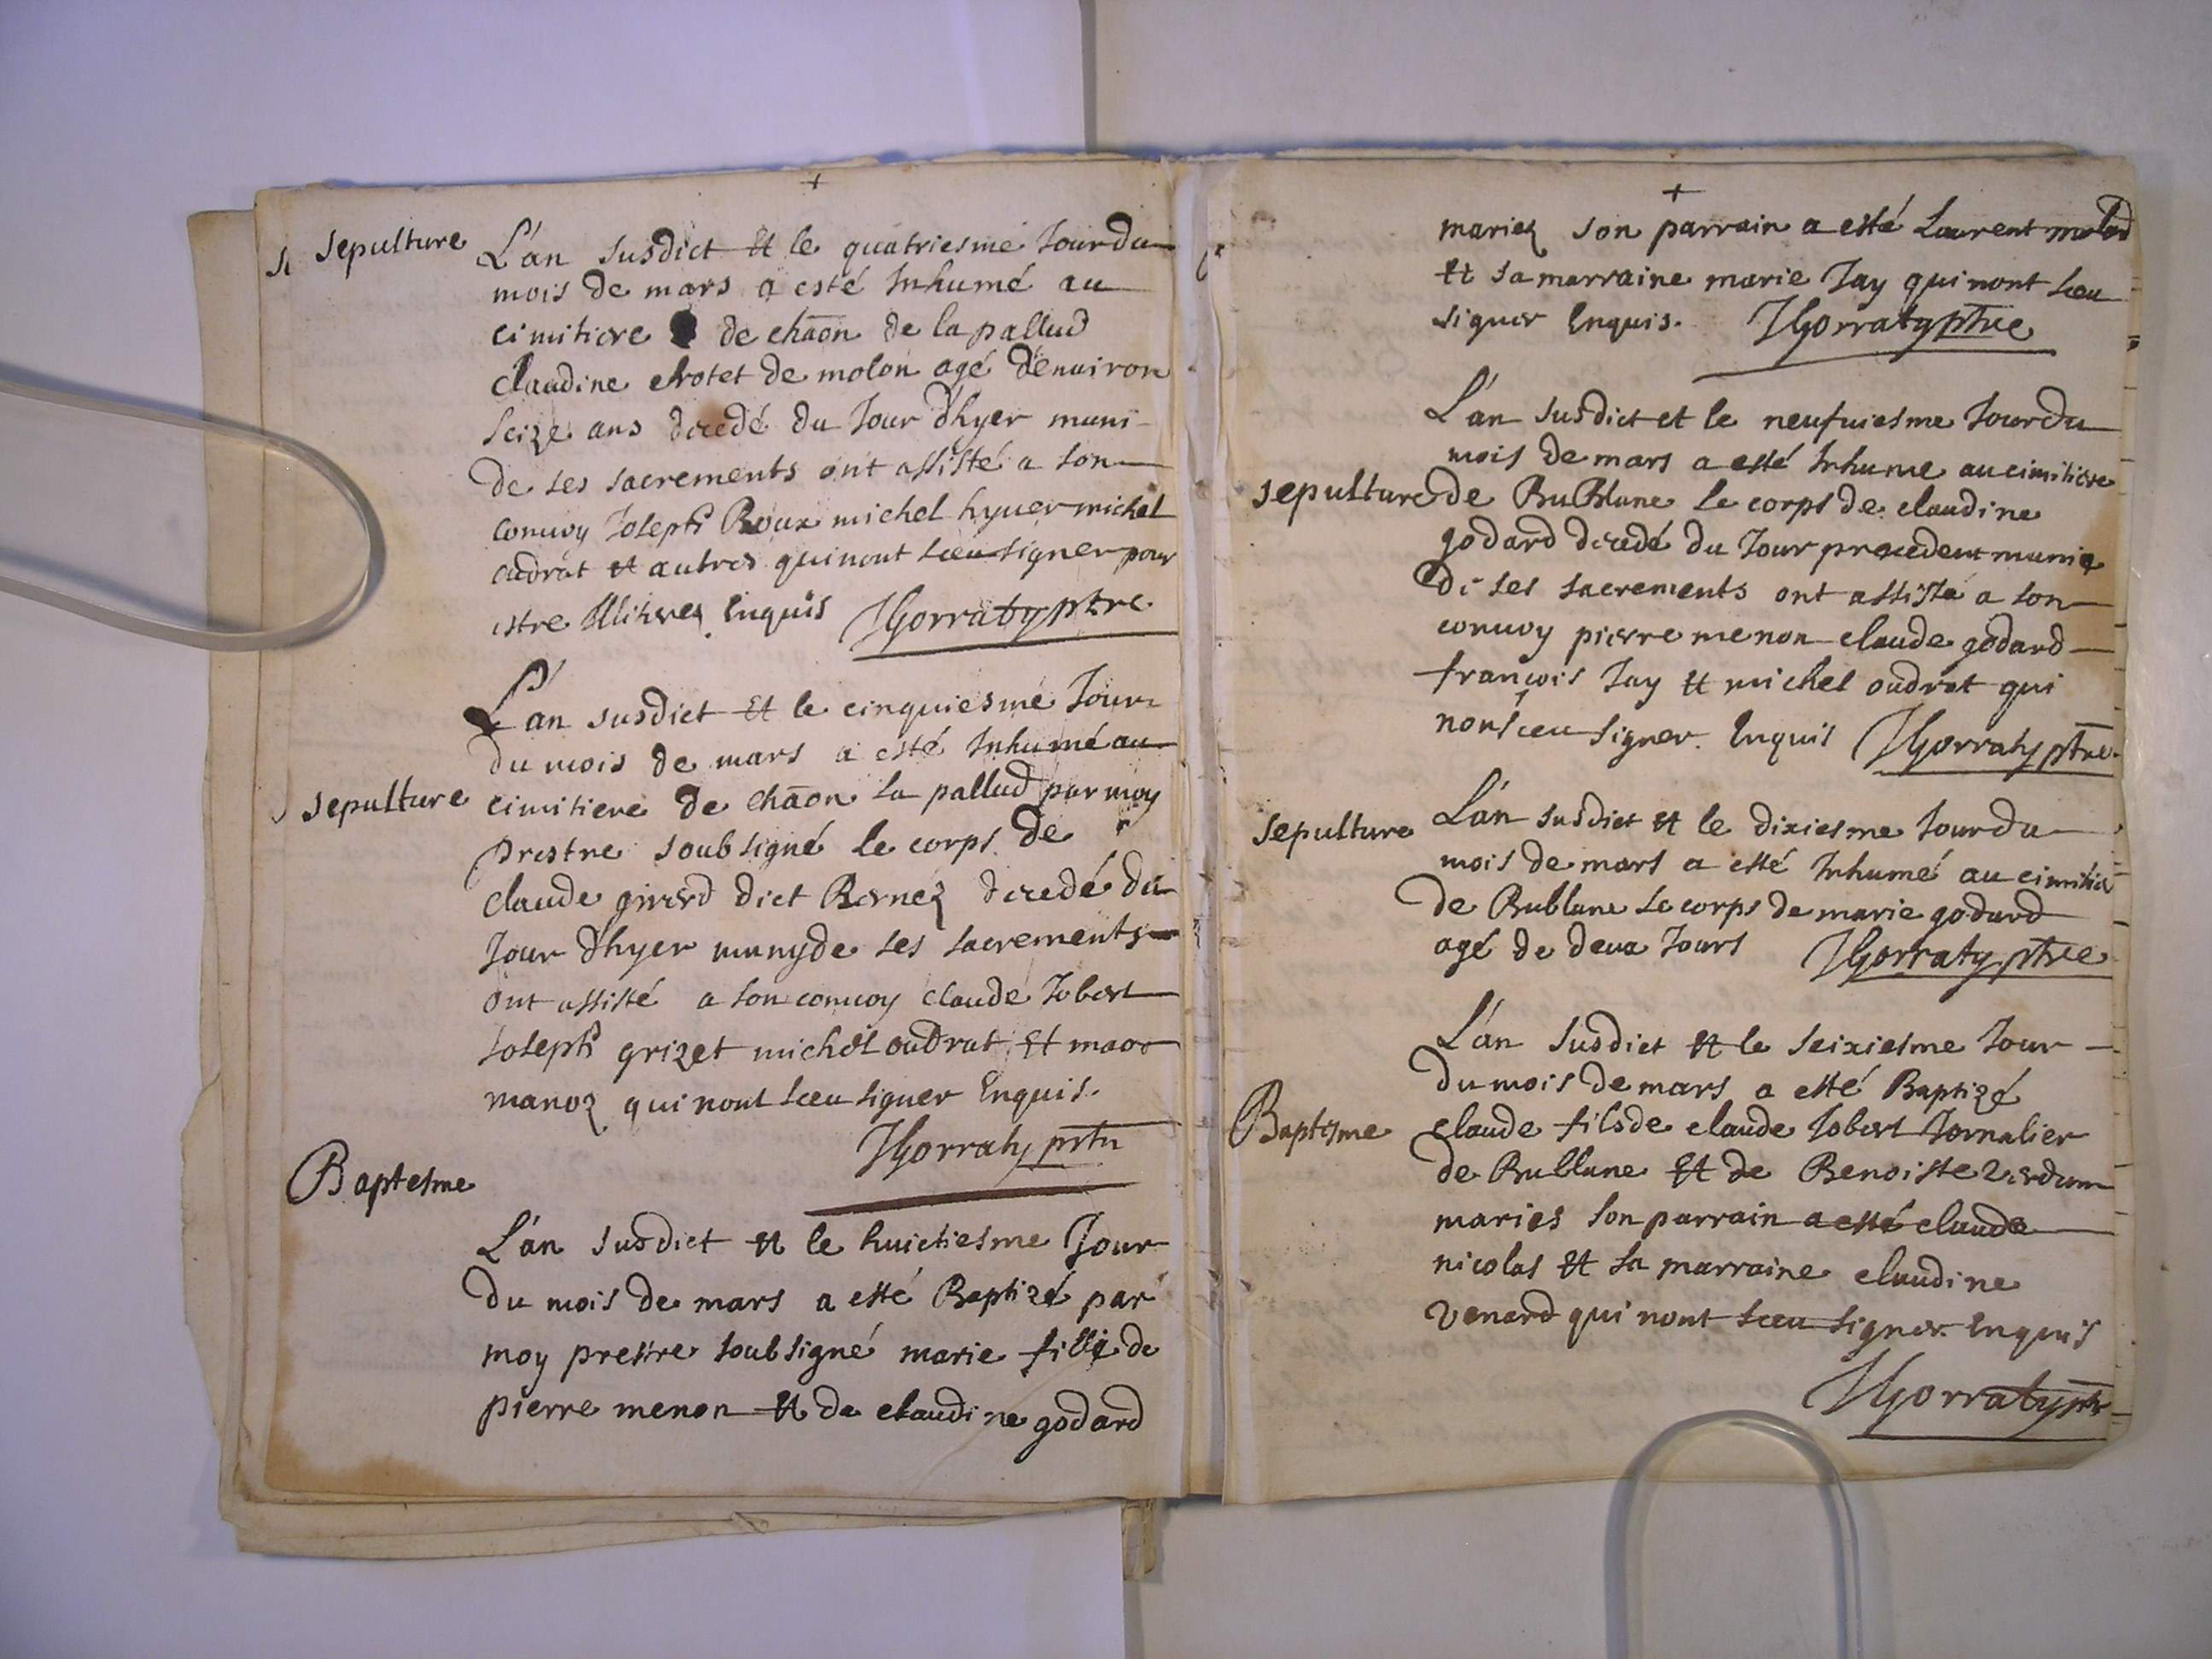 +
sepulture
L'an susdict et le quatriesme Jour du
mois de mars a esté Inhumé au
cimitiere de chãon de la pallud
claudine chotet de molon agé denuiron
seize ans decedé du Jour dhyer muni
de ses sacrements ont assisté a son
conuoy Joseph Roux michel hyuer michel
oudrat et autres qui nont sceu signer pour
estre Illiteres Enquis JGorraty ptre
L'an susdict Et le cinquiesme Jour
du mois de mars a esté Inhumé au
sepulture
cimitiere de chãon la pallud par moy
prestre soubsigné le corps de
claude girerd dict Bernez decedé du
Jour dhyer muny de ses sacrements
ont assisté a son conuoy claude Jobert
Joseph grizet michel oudrat Et
manoz qui nont sceu signer Enquis.
JGorraty prtr
Baptesme
L'an susdict et le huictiesme Jour
du mois de mars a esté Baptizé par
moy prestre soubsigné marie fille de
pierre menon et de claudine godard
+
mariez son parrain a esté Laurent
et sa marraine marie Jay qui nont sceu
signer Enquis. JGorraty ptre
L'an susdict et le neufuiesme Jour du
mois de mars a esté Inhume au cimitiere
sepulture
de Bublane le corps de claudine
godard decedé du Jour precedent munie
de ses sacrements ont assisté a son
conuoy pierre menon claude godard
françois Jay et michel oudrat qui
nont sceu signer. Enquis JGorraty ptre
sepulture
L'an susdict et le dixiesme Jour du
mois de mars a esté Inhumé au cimitie
de Bublane le corps de marie godard
agé de deux Jours JGorraty ptre
L'an susdict et le seixiesme Jour
du mois de mars a esté Baptizé
Baptesme
claude fils de claude Jobert Jornalier
de Bublane et de Benoiste
maries son parrain a esté claude
nicolas et sa marraine claudine
Venard qui nont sceu signer Enquis
JGorraty ptr